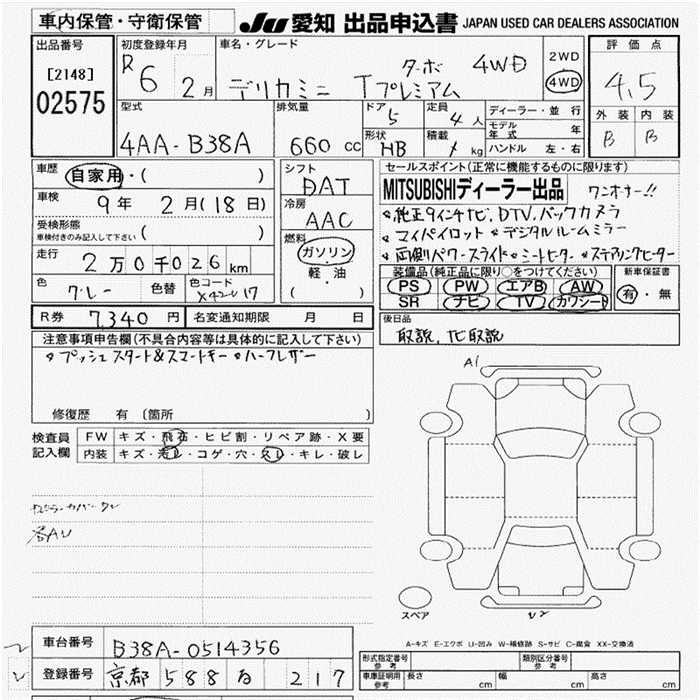 車内保管・守衛保管
JU 愛知 出品申込書 JAPAN USED CAR DEALERS ASSOCIATION
出品番号
[2148]
02575
初度登録年月
R 6 2月
車名・グレード
デリカミニ Tプレミアム ターボ 4WD
2WD
4WD
評価点
4,5
外装 内装
B B
型式
4AA-B38A
排気量
660 cc
ドア 5
形状 HB
定員 4 人
積載 kg
ディーラー・並行
モデル年式 年
ハンドル 左・右
車歴 自家用・( )
車検 9年 2月(18日)
受検形態
車検付きのみ記入して下さい ( )
走行 2万0千026km
色 グレー 色替 色コード X42 17
シフト
DAT
冷房
AAC
燃料
ガソリン
・軽・油
( )
セールスポイント(正常に機能するものに限ります)
MITSUBISHIディーラー出品 ワンオーナー!!
◦純正9インチナビ,DTV,バックカメラ
◦マイパイロット ◦デジタルルームミラー
◦両側パワースライド◦シートヒーター◦ステアリングヒーター
装備品(純正品に限り○をつけてください)
PS PW エアB AW
SR ナビ TV カワシート
新車保証書
有・無
R券 7,340 円 名変通知期限 月 日
後日品
取説,ナビ取説
注意事項申告欄(不具合内容等は具体的に記入して下さい)
◦プッシュスタート&スマートキー ◦ハーフレザー
修復歴 有 (箇所 )
検査員記入欄
FW キズ・飛石・ヒビ割・リペア跡・X要
内装 キズ・汚レ・コゲ・穴・スレ・キレ・破し
各AU
A1
U2
スペア
A-キズ E-エクボ U-凹み W-補修跡 S-サビ C-腐食 XX-交換済
車台番号 B38A-0514356
登録番号 京都 588 217
形式指定番号 参考
類別区分番号 参考
車庫証明用 参考 長さ cm 幅 cm 高さ cm